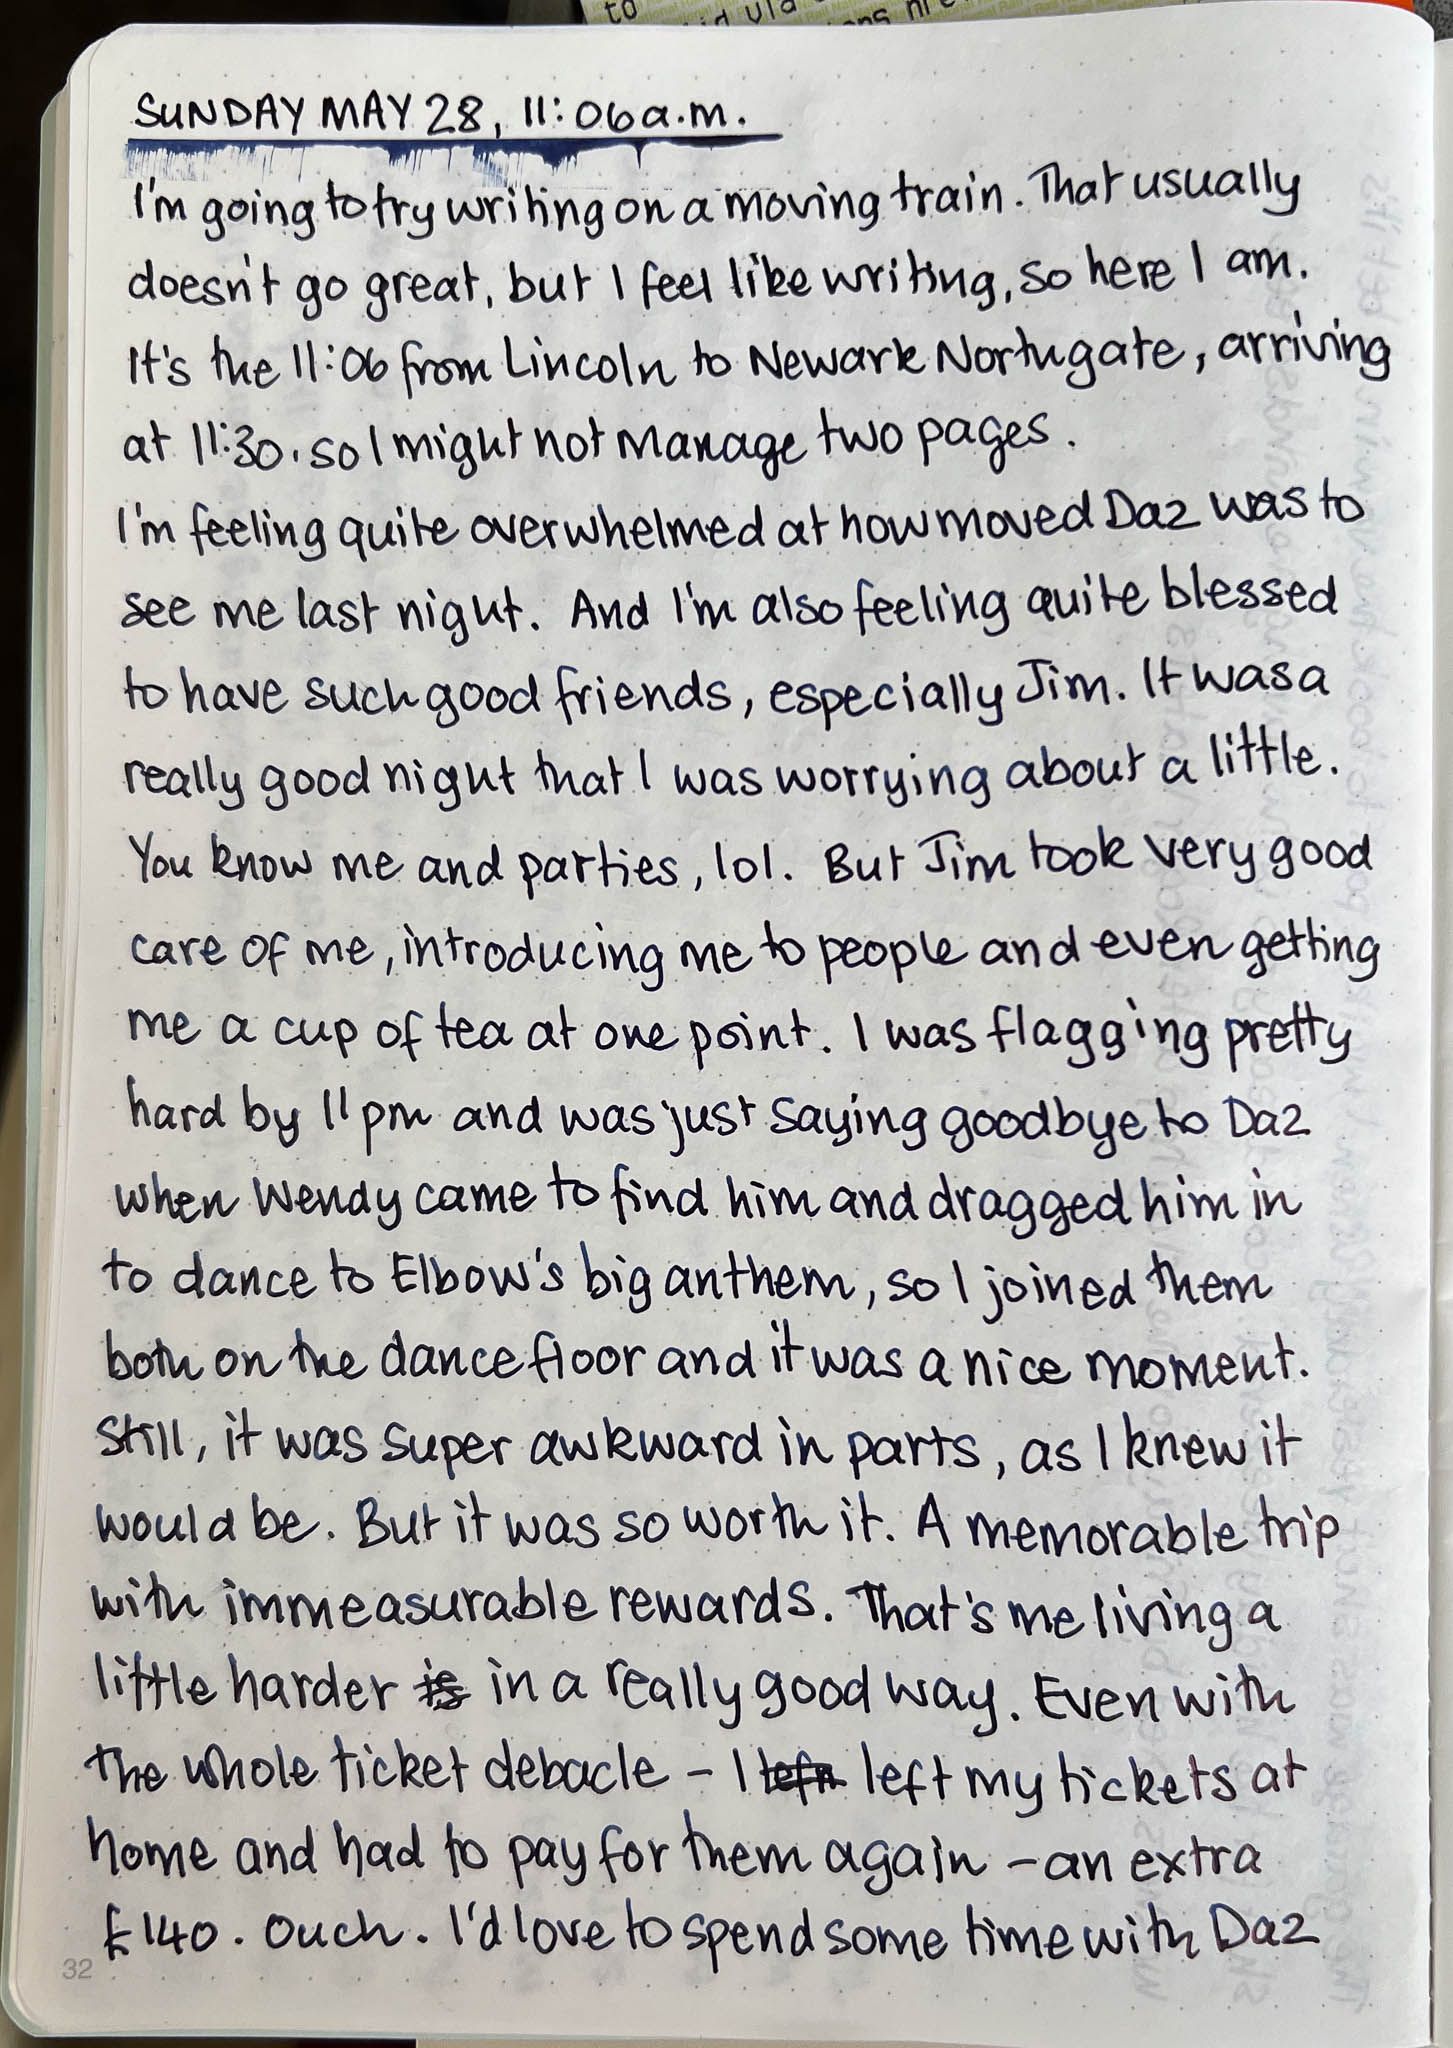 SUNDAY MAY 28, 11:06 a.m.
I'm going to try writing on a moving train. That usually
doesn't go great, but I feel like writing, so here I am.
It's the 11:06 from Lincoln to Newark Northgate, arriving
at 11:30, so I might not manage two pages.
I'm feeling quite overwhelmed at how moved Daz was to
see me last night. And I'm also feeling quite blessed
to have such good friends, especially Jim. It was a
really good night that I was worrying about a little.
You know me and parties, lol. But Jim took very good
care of me, introducing me to people and even getting
me a cup of tea at one point. I was flagging pretty
hard by 11pm and was just saying goodbye to Daz
when Wendy came to find him and dragged him in
to dance to Elbow's big anthem, so I joined them
both on the dancefloor and it was a nice moment.
Still, it was super awkward in parts, as I knew it
would be. But it was so worth it. A memorable trip
with immeasurable rewards. That's me living a
little harder is in a really good way. Even with
the whole ticket debacle – I left my tickets at
home and had to pay for them again – an extra
£140. Ouch. I'd love to spend some time with Daz
32